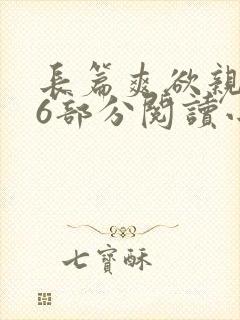 長篇爽欲親
6部分閱讀小
七寶酥